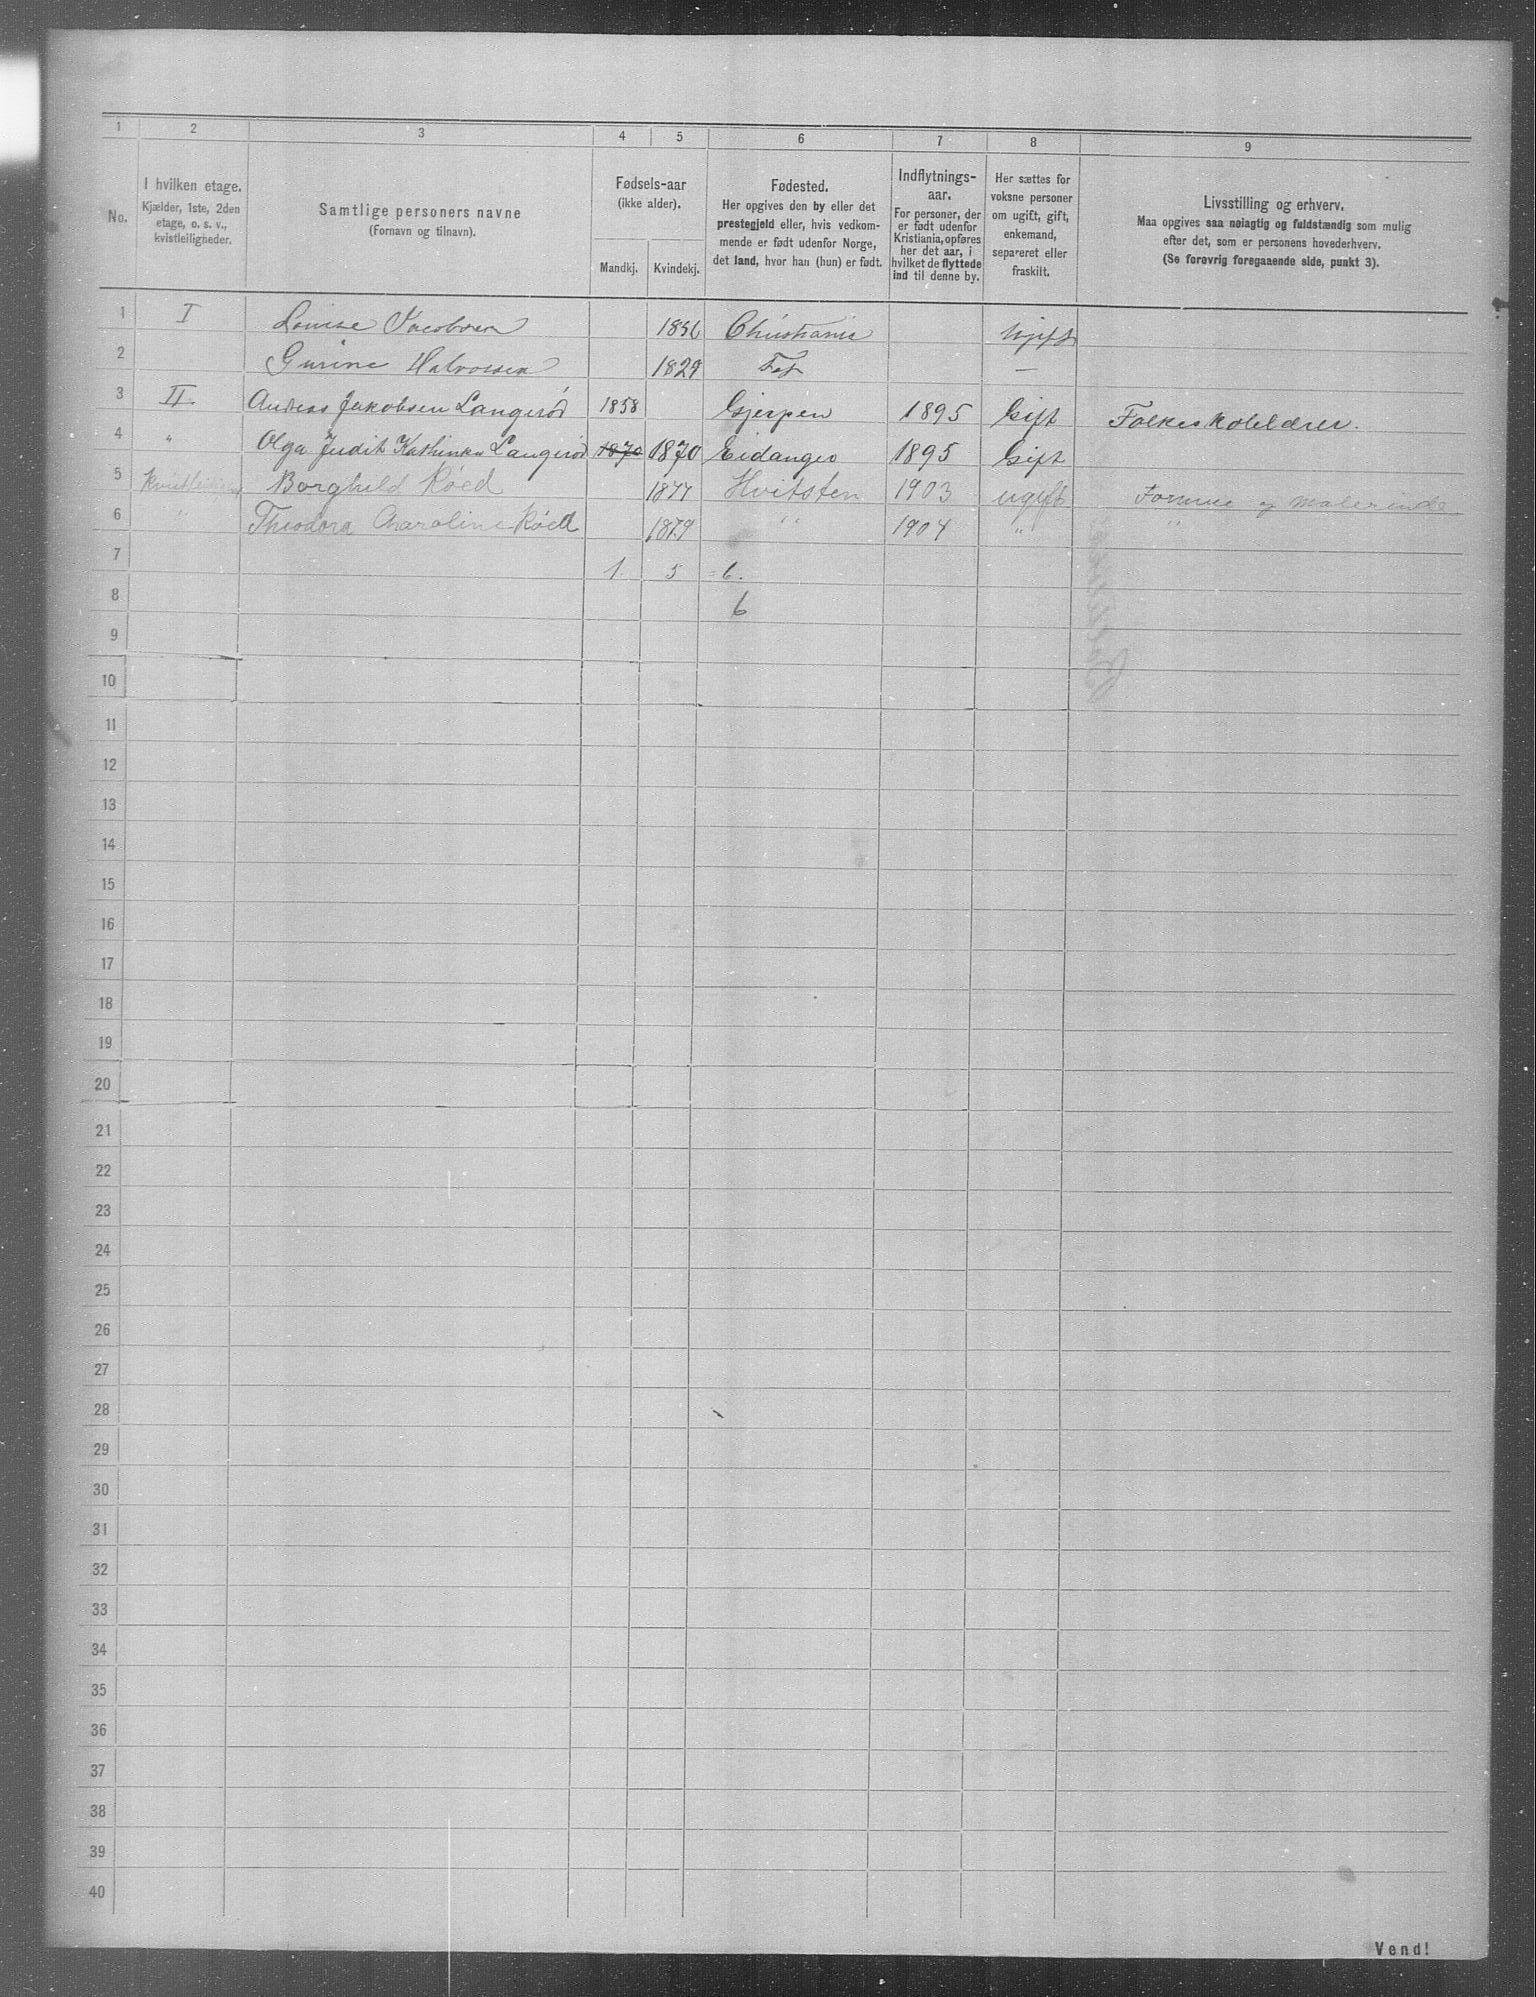 1 2 3 4 5 6 7 8 9
No.
I hvilken etage.
Kjælder, 1ste, 2den
etage, o. s. v.,
kvistleiligheder.
Samtlige personers navne
(Fornavn og tilnavn).
Fødsels-aar
(ikke alder).
Mandkj. Kvindekj.
Fødested.
Her opgives den by eller det
prestegjeld eller, hvis vedkom-
mende er født udenfor Norge,
det land, hvor han (hun) er født.
Indflytnings-
aar.
For personer, der
er født udenfor
Kristiania, opføres
her det aar, i
hvilket de flyttede
ind til denne by.
Her sættes for
voksne personer
om ugift, gift,
enkemand,
separeret eller
fraskilt.
Livsstilling og erhverv.
Maa opgives saa nøiagtig og fuldstændig som mulig
efter det, som er personens hovederhverv.
(Se forøvrig foregaaende side, punkt 3).
1 I Louise Jacobsen 1856 Christiania Ugift
2 Gurine Halvorsen 1829 Fet —
3 II. Andreas Jakobsen Langerød 1858 Gjerpen 1895 Gift Folkeskolelærer.
4 " Olga Judit Kathinka Langerød 1870 1870 Eidanger 1895 Gift
5 Borghild Røed 1877 Hvitsten 1903 ugift Formue og malerinde
6 " Theodora Charoline Røed 1879 " 1904 " "
7 1. 5 = 6.
8 6
9
10
11
12
13
14
15
16
17
18
19
20
21
22
23
24
25
26
27
28
29
30
31
32
33
34
35
36
37
38
39
40
Vend!